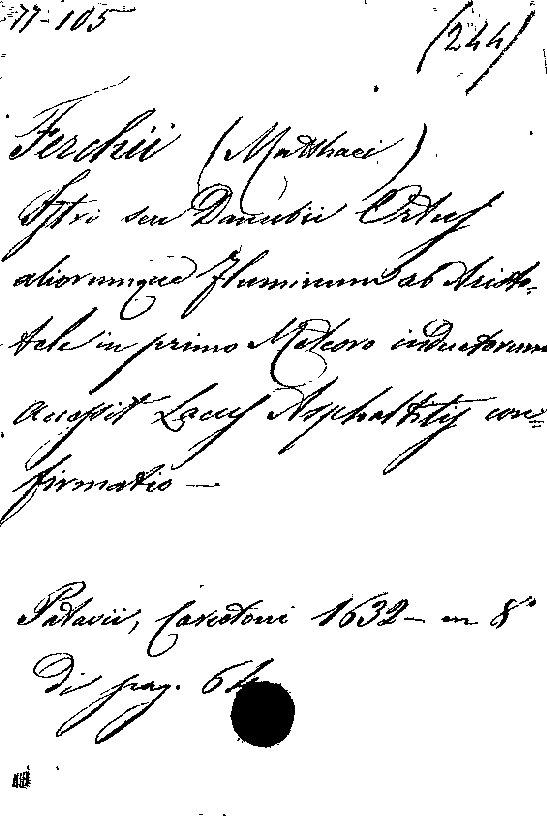 77-105
(244)
Ferchii (Matthaei)
Istri seu Danubii Ortus
aliorumque fluminum ab Aristo=
tele in primo Meteoro inductorum
accessit Lacus Asphaltitis con=
firmatio —
Patavii, Cavedoni 1632 - in 8°
di pag. 64